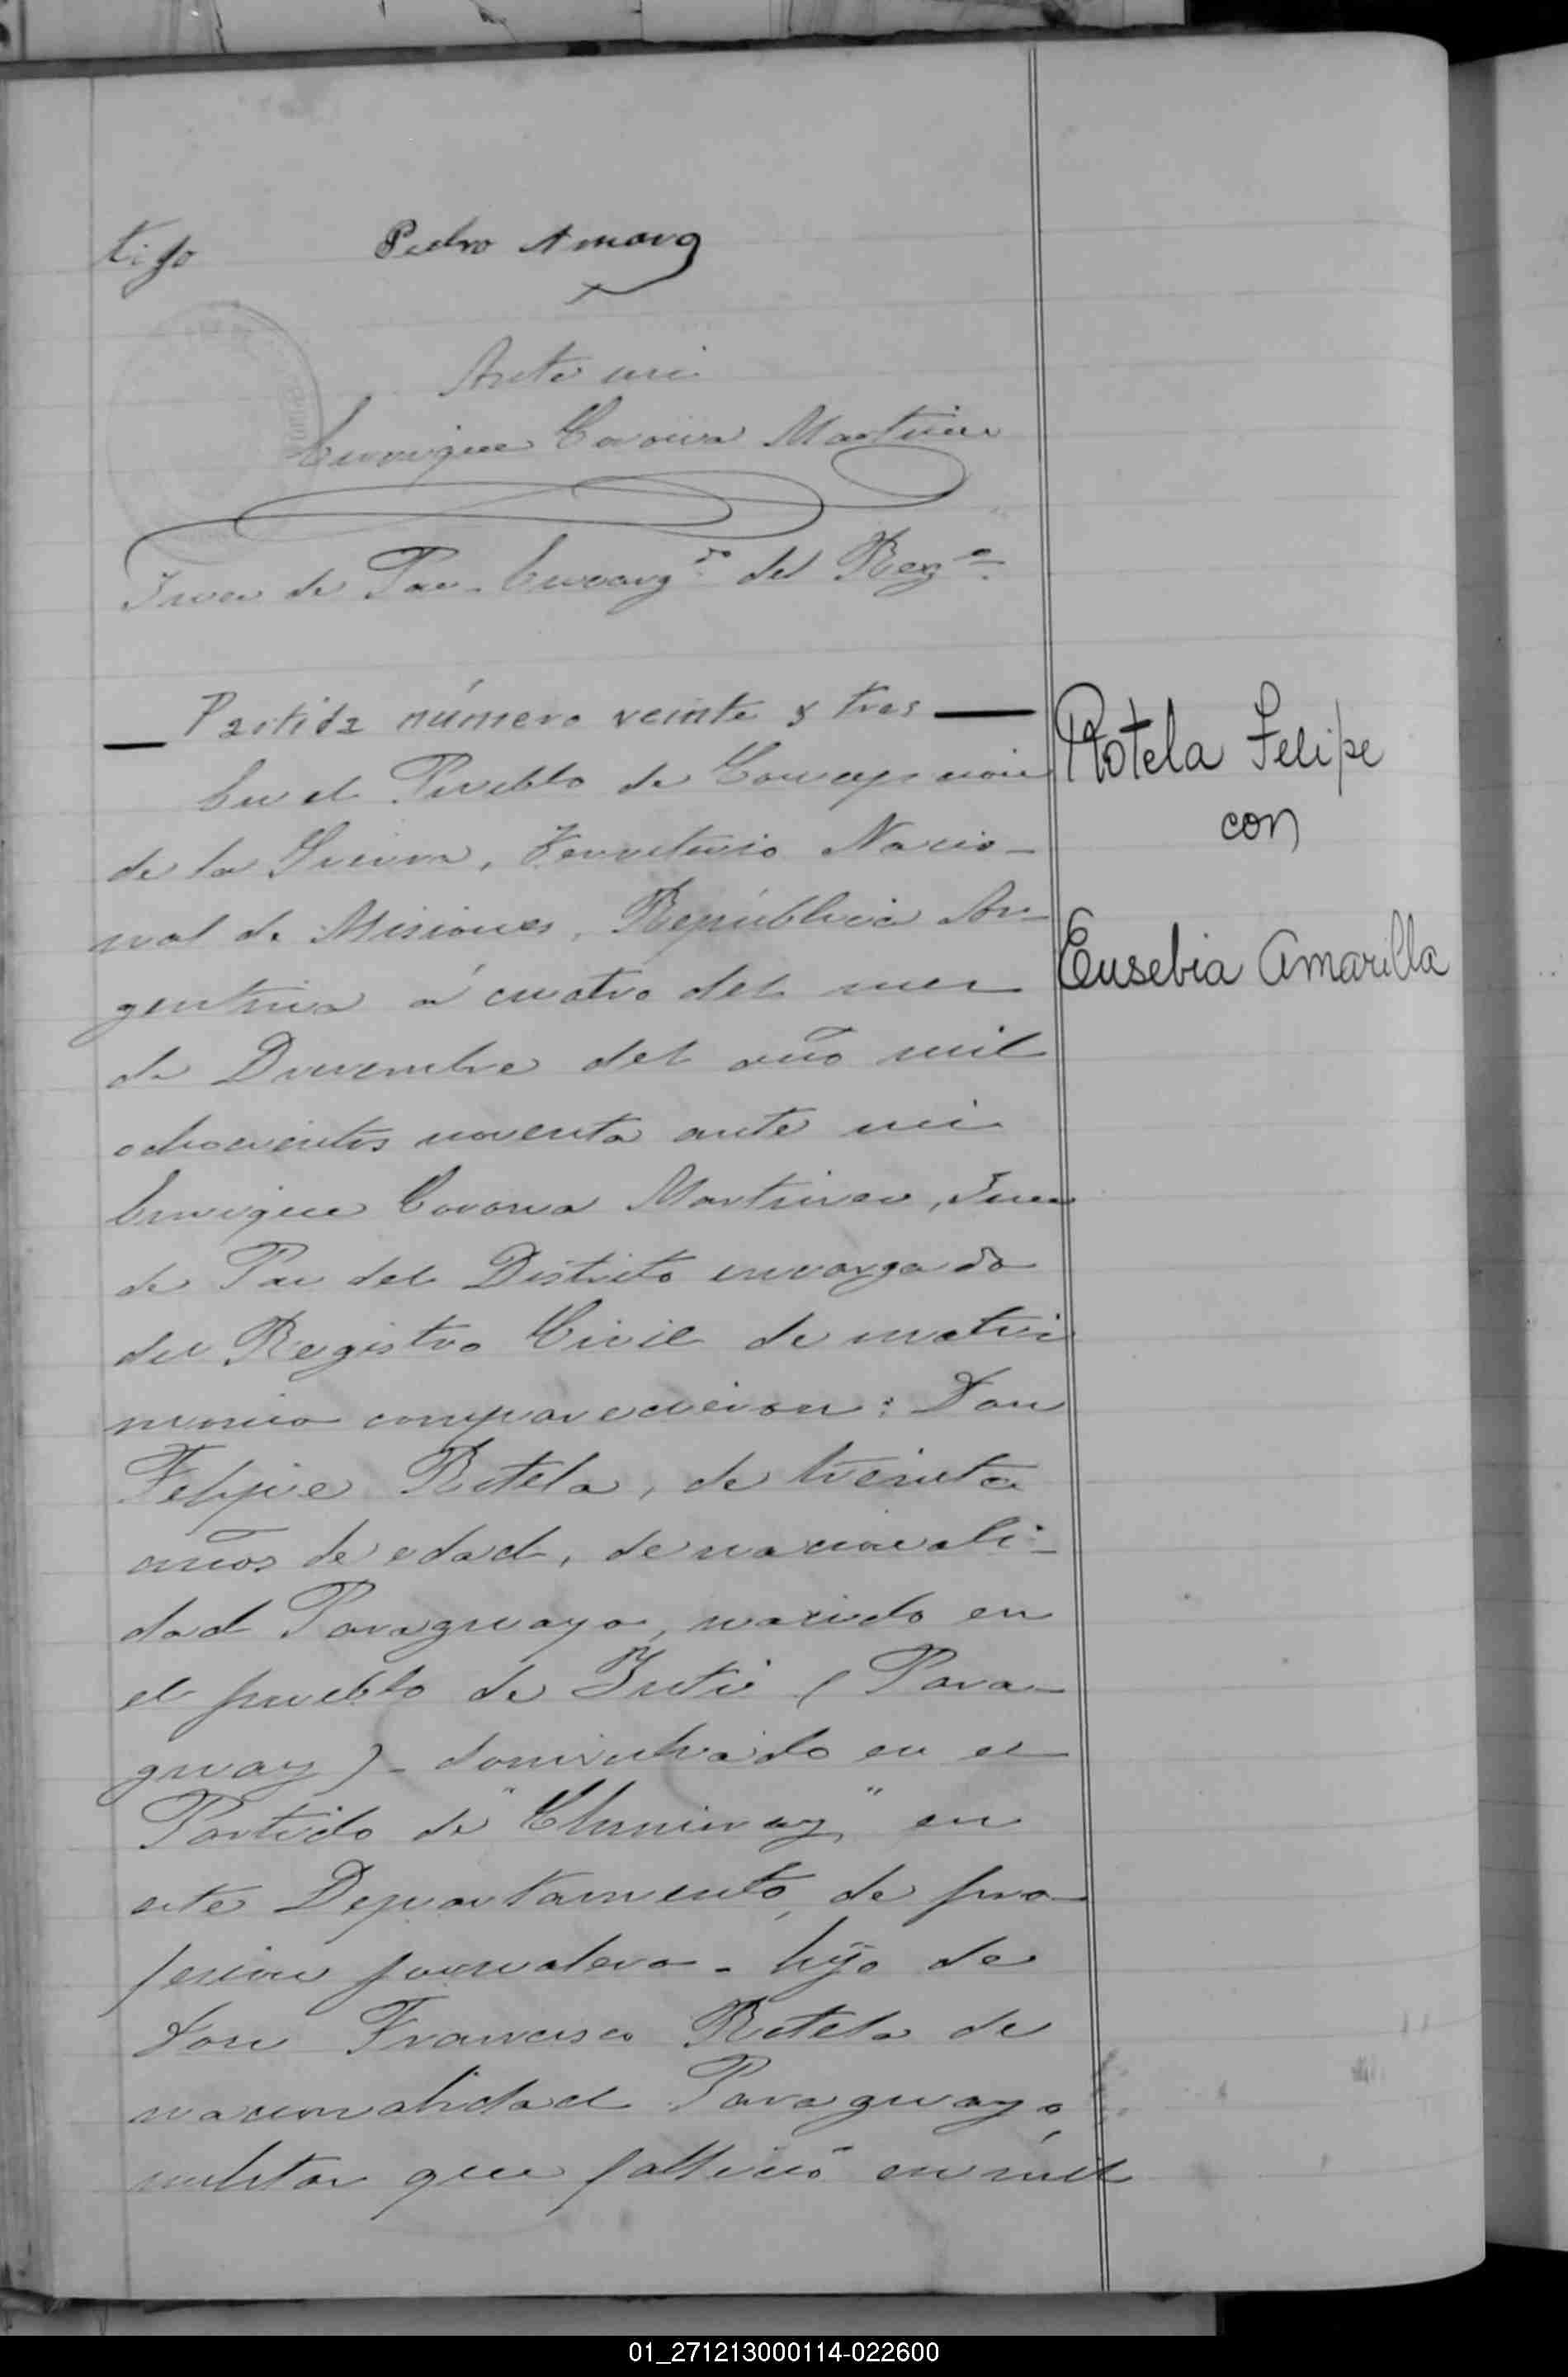 tigo Pedro Amaro
Ante mi
Enrique Corona Martinez
Juez de Paz Encargdo del Rego
Partida número veinte y tres
En el Pueblo de Concepcion
de la Sierra, Territorio Nacio-
nal de Misiones, República Ar-
gentina á cuatro del mes
de Diciembre del año mil
ochocientos noventa ante mi
Enrique Corona Martinez, Juez
de Paz del Distrito encargado
del Registro Civil de matri
monio comparecieron: Don
Felipe Rotela, de treinta
años de edad, de nacionali-
dad Paraguaya, nacido en
el pueblo de Yuti (Para-
guay) - domiciliado en el
Partido de "" en
este Departamento, de pro
fesion jornalero - hijo de
Don Francisco Rotela de
nacionalidad Paraguayo,
militar que falleció en mil
Rotela Felipe
con
Eusebia Amarilla
01_271213000114-022600